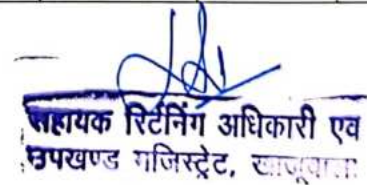 सहायक रिटर्निंग अधिकारी एवं
उपखण्ड मजिस्ट्रेट, खाजूवाला